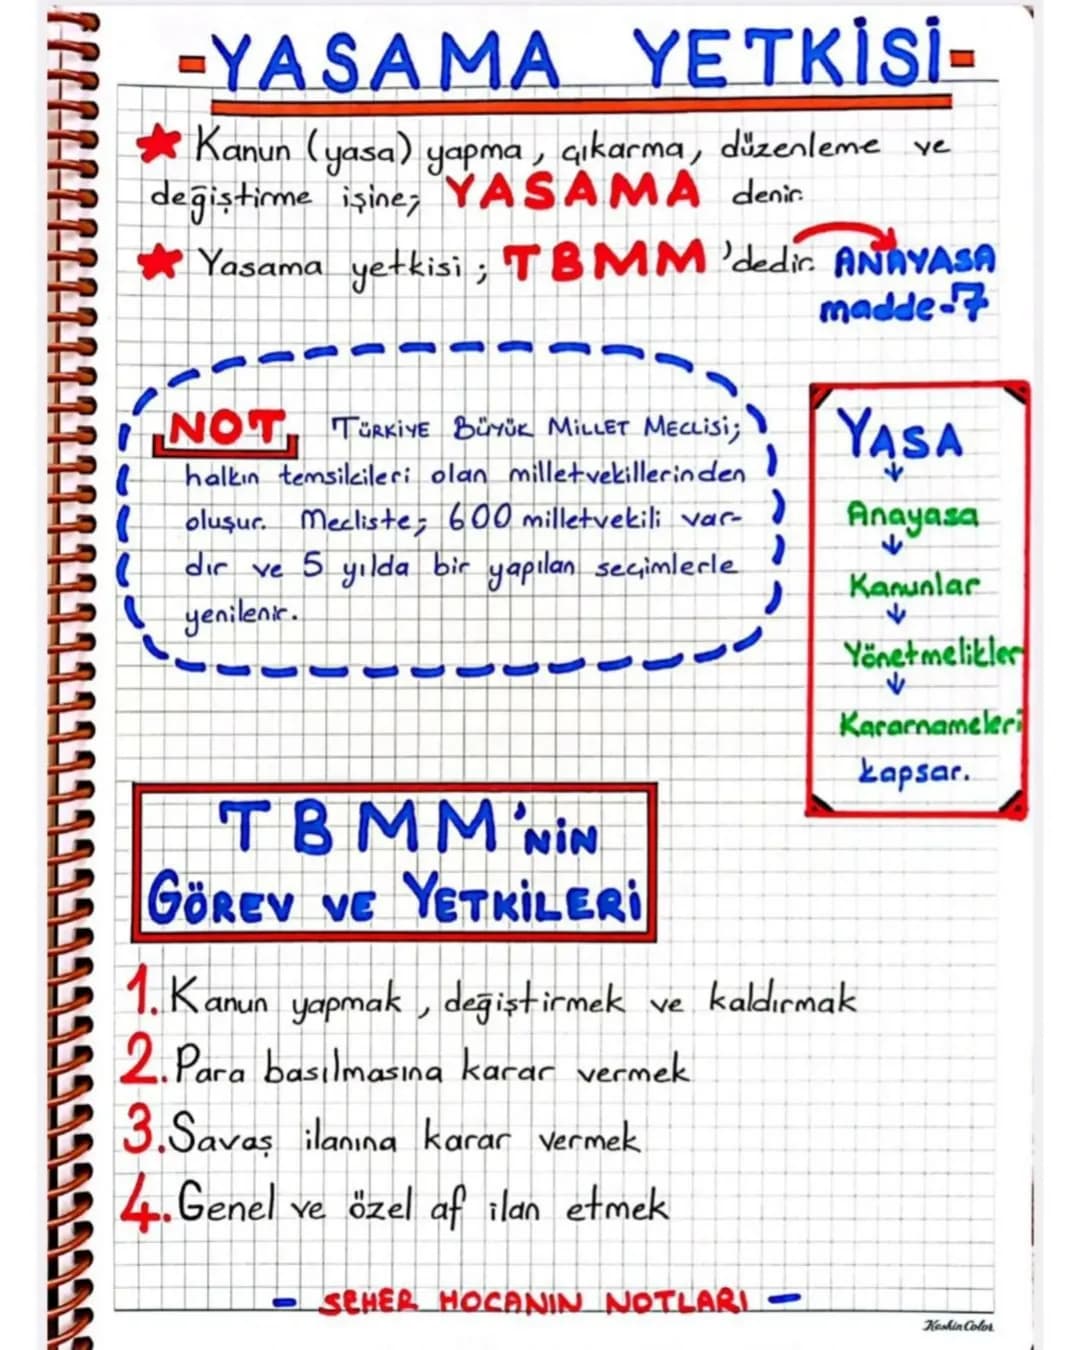 -YASAMA YETKİSİ-
★ Kanun (yasa) yapma, çıkarma, düzenleme ve
değiştirme işine; YASAMA denir.
★ Yasama yetkisi; TBMM'dedir. ANAYASA
madde-7
NOT TÜRKİYE BÜYÜK MİLLET MECLİSİ;
halkın temsilcileri olan milletvekillerinden
oluşur. Mecliste; 600 milletvekili var-
dır ve 5 yılda bir yapılan seçimlerle
yenilenir.
YASA
↓
Anayasa
↓
Kanunlar
↓
Yönetmelikler
↓
Kararnameleri
kapsar.
TBMM'NİN
GÖREV VE YETKİLERİ
1. Kanun yapmak, değiştirmek ve kaldırmak
2. Para basılmasına karar vermek
3. Savaş ilanına karar vermek
4. Genel ve özel af ilan etmek
- SEHER HOCANIN NOTLARI -
KeskinColor